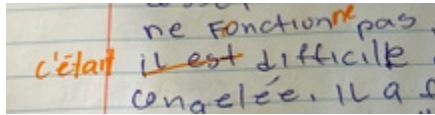 ne fonctionne pas
c'était il est difficile
congelée. Il a